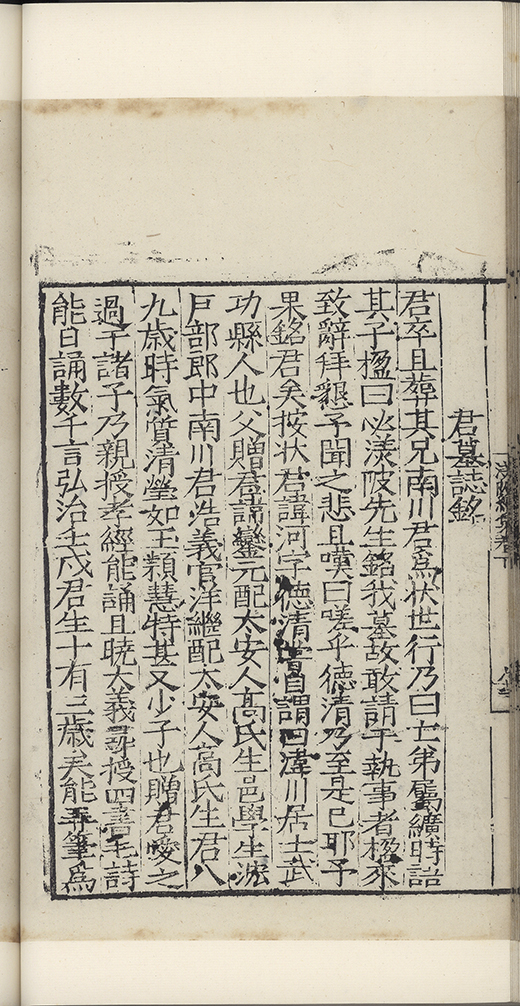 君墓誌銘
君卒且葬其兄南川君為狀世行乃曰亡弟屬纊時詒
其子楹曰必渼陂先生銘我墓故敢請于執事者楹來
致辭拜懇予聞之悲且嘆曰嗟乎德清乃至是已耶予
果銘君矣按狀君諱河字德清嘗自謂曰湋川居士武
功縣人也父贈君誦鑾元配太安人高氏生邑學生滋
戶部郎中南川君浩義官洋繼配太安人高氏生君八
九歲時氣質清瑩如玉穎慧特甚又少子也贈君愛之
過于諸子乃親授孝經能誦且曉大義尋授四書毛詩
能日誦數千言弘治壬戌君生十有三歲矣能弄筆為